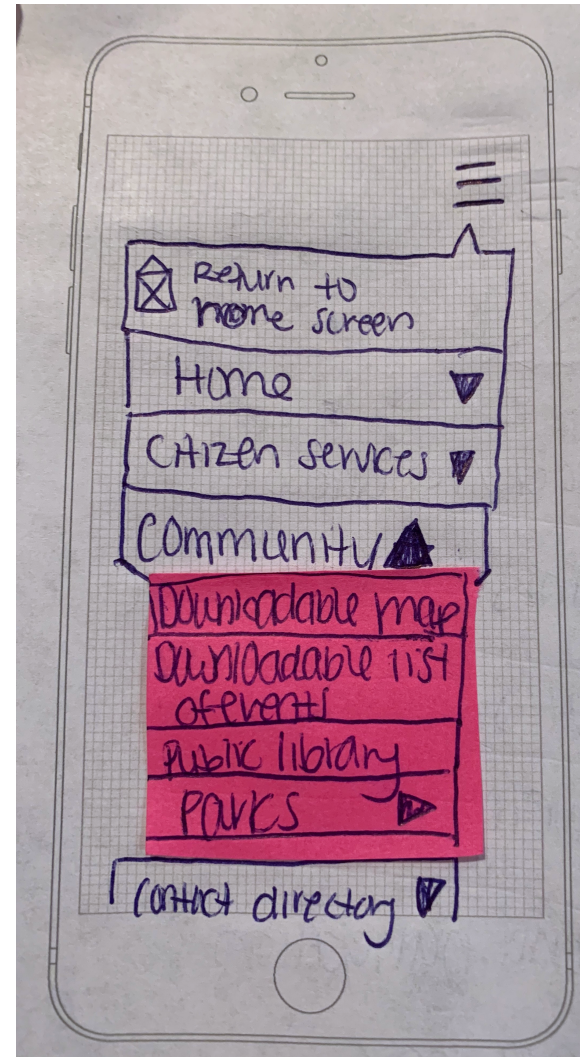 Return to
home screen
Home
Citizen services
Community
Downloadable map
Downloadable list
of events
Public library
Parks
Contact directory